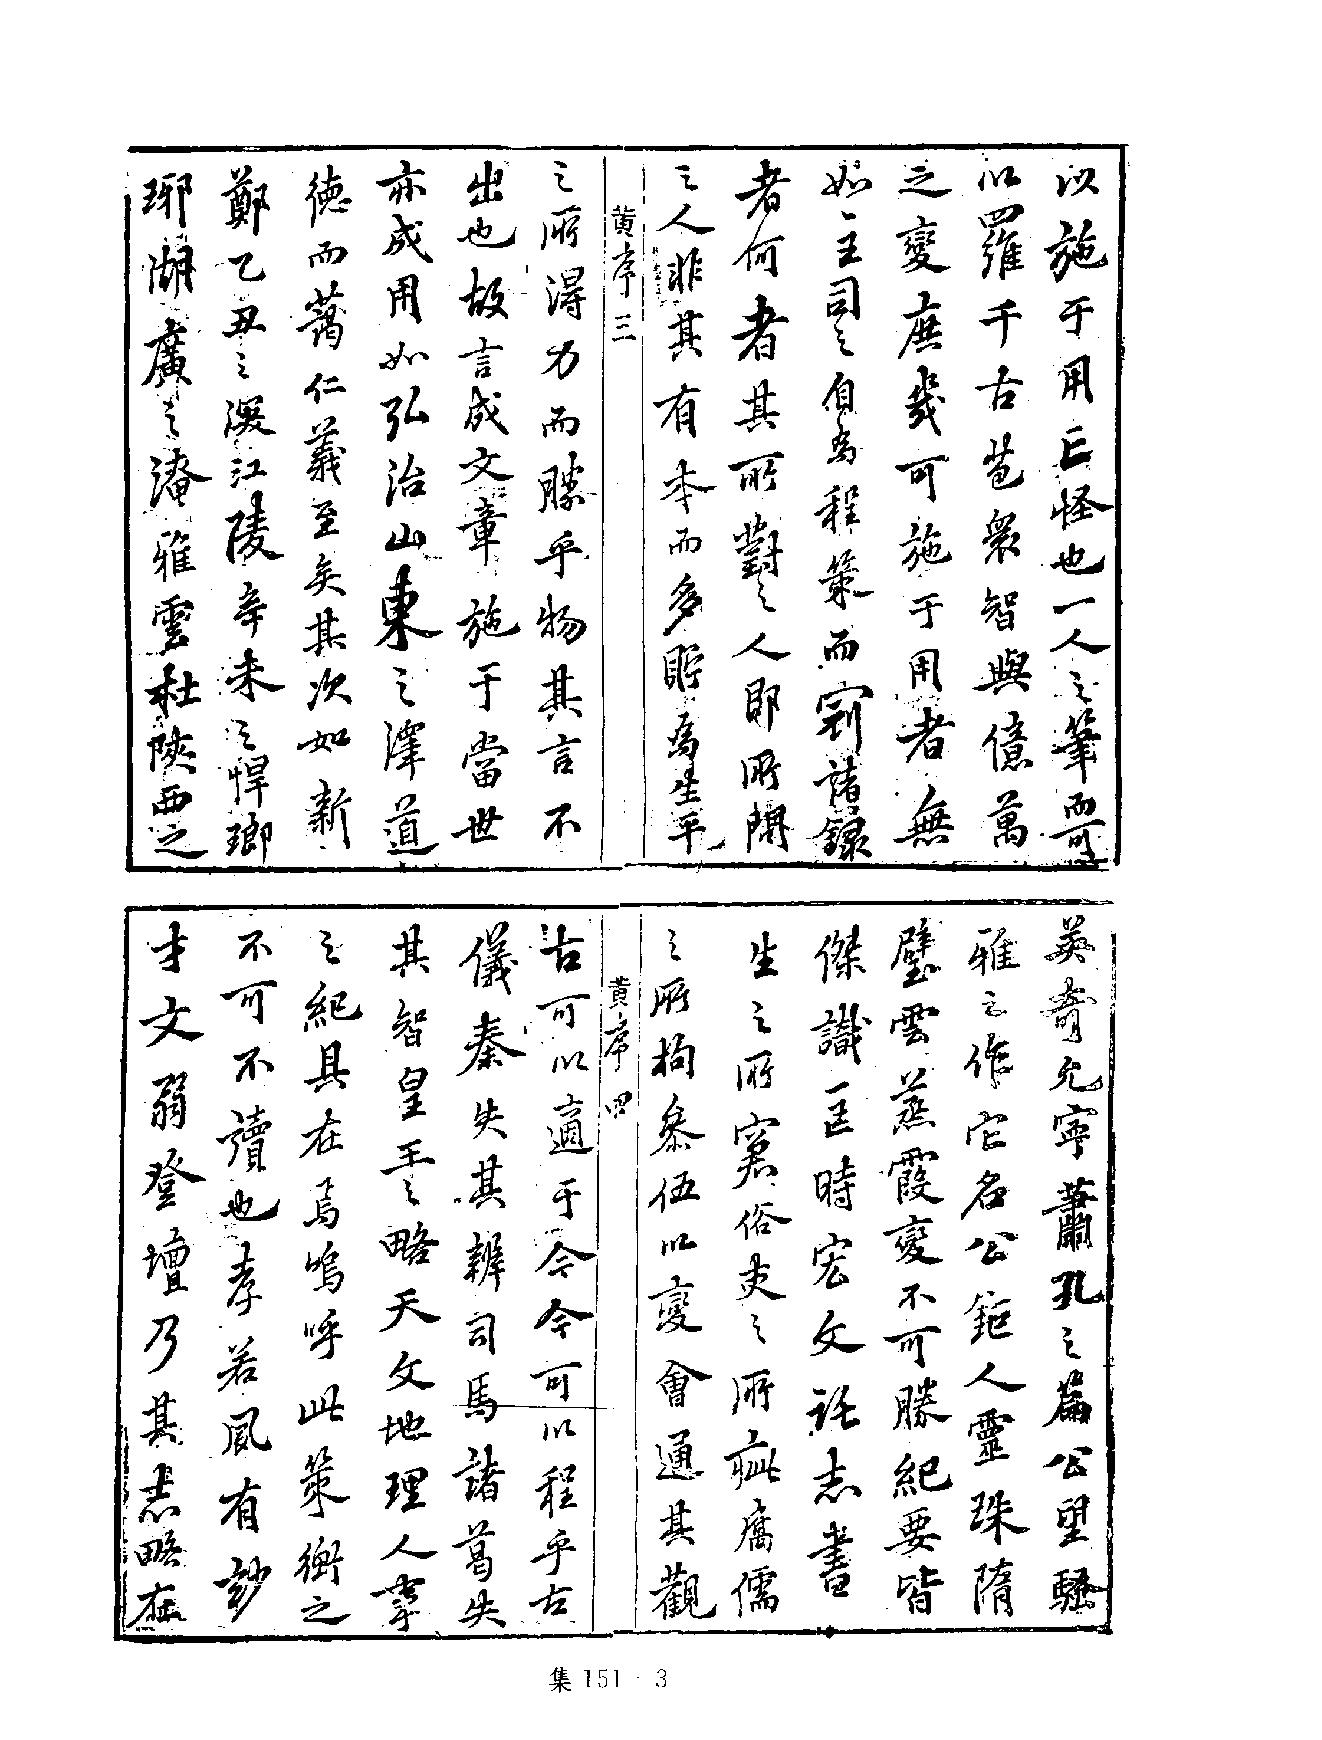 以施于用亡怪也一人之筆而可
以羅千古苞衆智與億萬
之變庶幾可施于用者無
如主司之自為程策而寀諸錄
者何者其所對之人即所開
之人非其有本而多貯為生平
黄序三
之所得力而勝乎物其言不
出也故言成文章施于當世
亦成用如弘治山東之澤道
德而藹仁義至矣其次如新
鄭乙丑之選江陵辛未之悍瑯
琊湖廣之淹雅雲杜陝西之
英奇允寧蕭孔之篇公望騷
雅之作它名公鉅人靈珠隋
璧雲蒸霞變不可勝紀要皆
傑識匡時宏文託志書
生之所窘俗吏之所疵腐儒
之所拘參伍以變會通其觀
黄序四
古可以適于今今可以程乎古
儀秦失其辨司馬諸葛失
其智皇王之略天文地理人事
之紀具在焉嗚呼此策衡之
不可不讀也孝若夙有
才文弱登壇乃其志略在
集 151 - 3